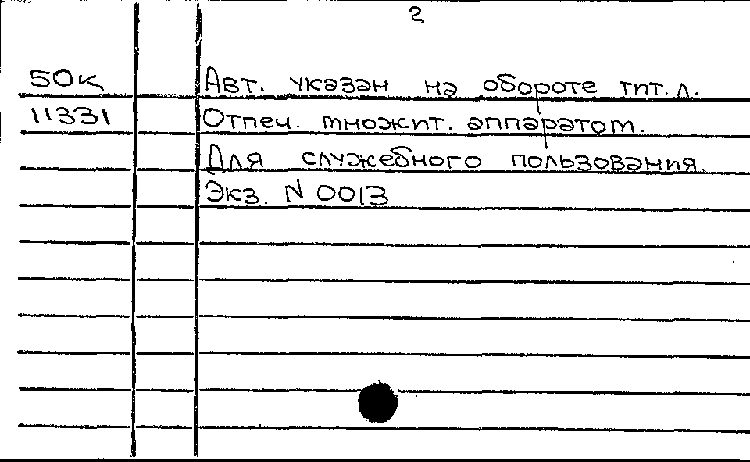 2
50к Авт. указан на обороте тит. л.
11331 Отпеч. множит. аппаратом.
Для служебного пользования.
Экз. N 0013